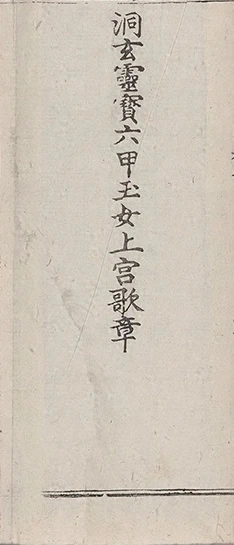 洞玄靈寶六甲玉女上宮歌章